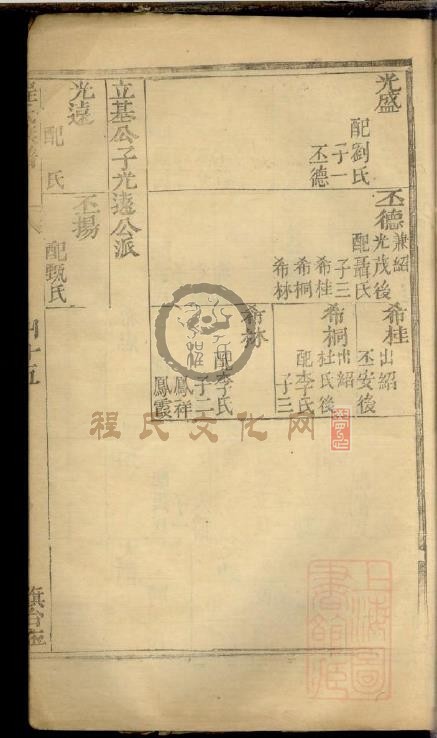 光盛
配劉氏
子一
丕德
丕德
兼紹
光茂後
配聶氏
子三
希桂
希桐
希林
希桂
出紹
丕安後
希桐
出紹
杜氏後
配李氏
子三
希林
配李氏
子二
鳳祥
鳳霞
立基公子光遠公派
光遠
配 氏
丕揚
配甄氏
四十五
程氏文化网
上海圖書館藏